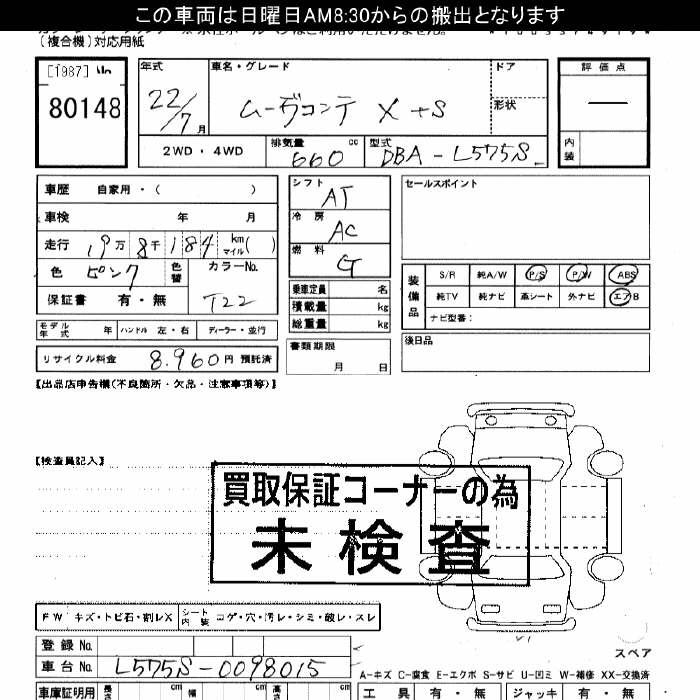 この車両は日曜日AM8:30からの搬出となります
(複合機)対応用紙
[1987]
80148
年式 車名・グレード ドア 評価点
22/7月 ムーヴコンテ X+S 形状 —
2WD・4WD 排気量 660 cc 型式 DBA-L575S 内装
車歴 自家用・( )
車検 年 月
走行 19万8千184 km マイル( )
色 ピンク 色替 カラーNo. T22
保証書 有・無
モデル年式 年 ハンドル 左・右 ディーラー・並行
リサイクル料金 8,960円 預託済
シフト AT
冷房 AC
燃料 G
乗車定員 名
積載量 kg
総重量 kg
書類期限
月 日
セールスポイント
装備品 S/R 純A/W P/S P/W ABS
純TV 純ナビ 革シート 外ナビ エアB
ナビ型番:
後日品
【出品店申告欄(不良箇所・欠品・注意事項等)】
【検査員記入】
買取保証コーナーの為
未検査
FW キズ・トビ石・割レX シート内装 コゲ・穴・汚レ・シミ・破レ・スレ
スペア
登録No.
車台No. L575S-0098015
A-キズ C-腐食 E-エクボ S-サビ U-凹ミ W-補修 XX-交換済
車庫証明用 長さ cm 幅 cm 高さ cm
工具 有・無 ジャッキ 有・無